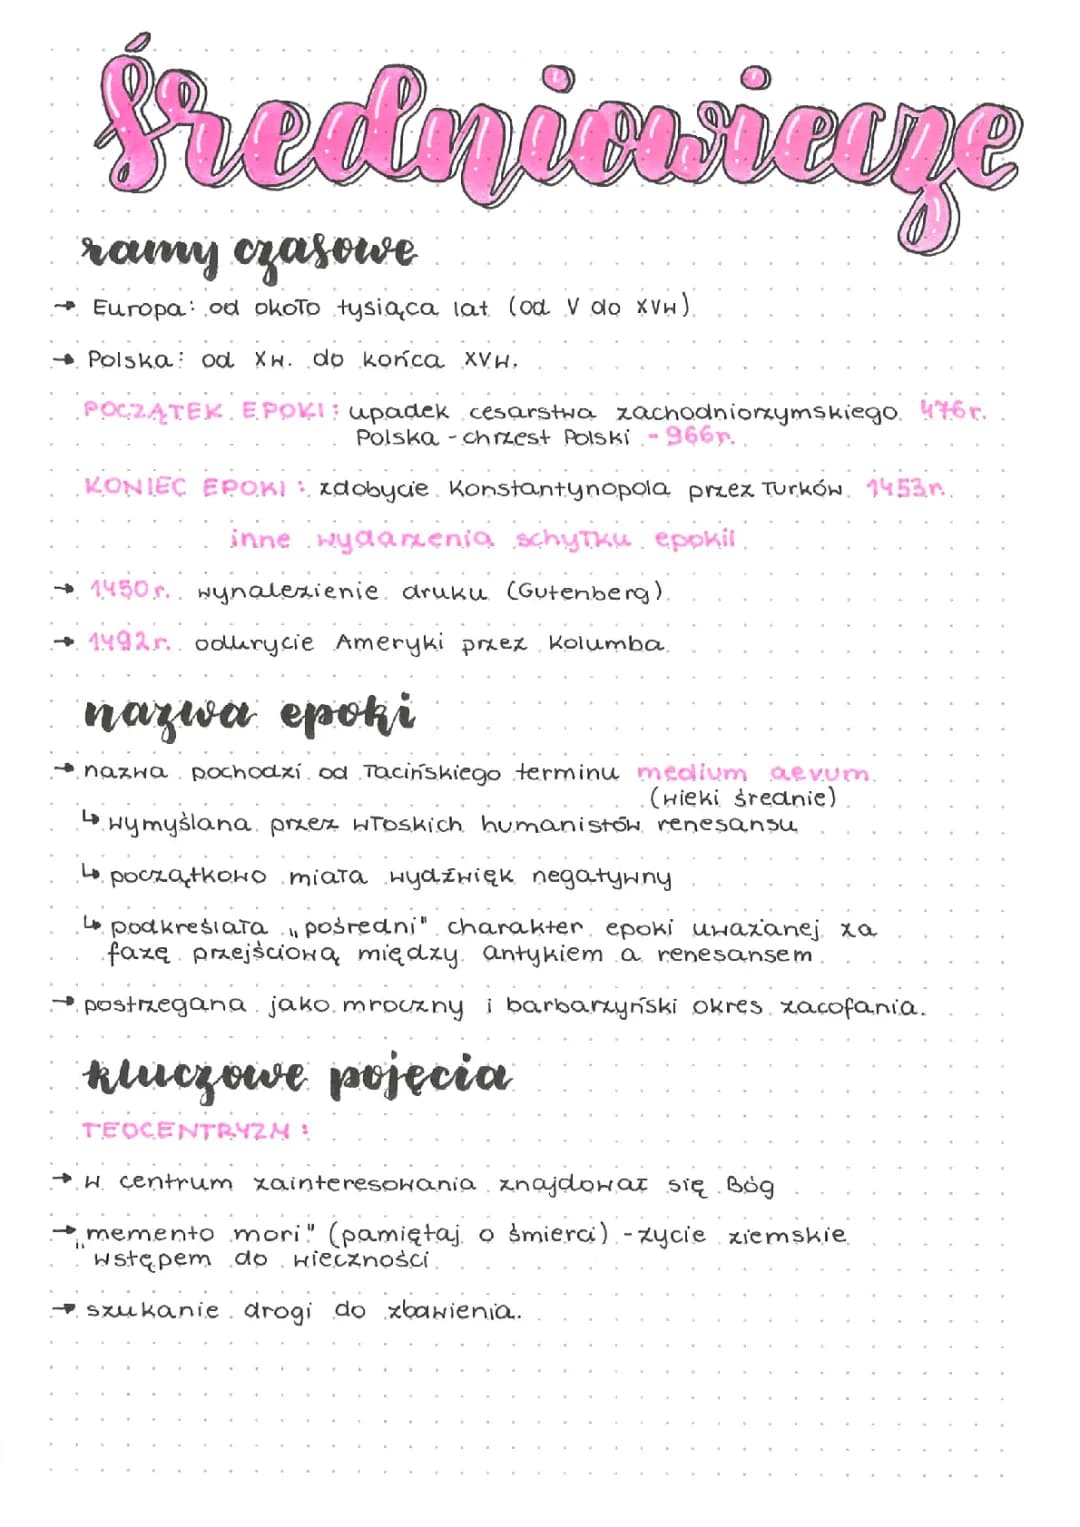 Średniowiecze
ramy czasowe
→ Europa: od około tysiąca lat (od V do XVw)
→ Polska: od Xw. do końca XVw.
POCZĄTEK EPOKI: upadek cesarstwa zachodniorzymskiego 476r.
Polska - chrzest Polski - 966r.
KONIEC EPOKI: zdobycie Konstantynopola przez Turków 1453r.
inne wydarzenia schyłku epoki!
→ 1450r. wynalezienie druku (Gutenberg)
→ 1492r. odkrycie Ameryki przez Kolumba
nazwa epoki
→ nazwa pochodzi od łacińskiego terminu medium aevum
(wieki średnie)
↳ wymyślana przez włoskich humanistów renesansu
↳ początkowo miała wydźwięk negatywny
↳ podkreślała „pośredni" charakter epoki uważanej za
fazę przejściową między antykiem a renesansem
→ postrzegana jako mroczny i barbarzyński okres zacofania.
kluczowe pojęcia
TEOCENTRYZM:
→ w centrum zainteresowania znajdował się Bóg
→ „memento mori" (pamiętaj o śmierci) - życie ziemskie
wstępem do wieczności
→ szukanie drogi do zbawienia.